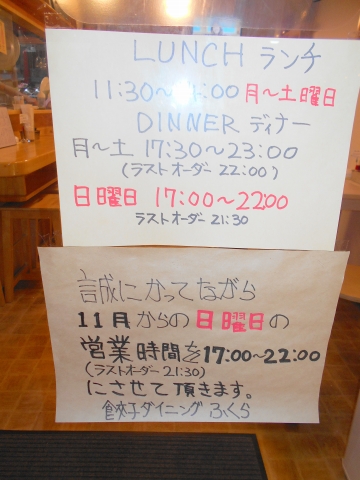 LUNCH ランチ
11:30〜 :00 月〜土曜日
DINNER ディナー
月〜土 17:30〜23:00
(ラストオーダー 22:00)
日曜日 17:00〜22:00
ラストオーダー 21:30
誠にかってながら
11月からの日曜日の
営業時間を17:00〜22:00
(ラストオーダー 21:30)
にさせて頂きます。
餃子ダイニング ふくら